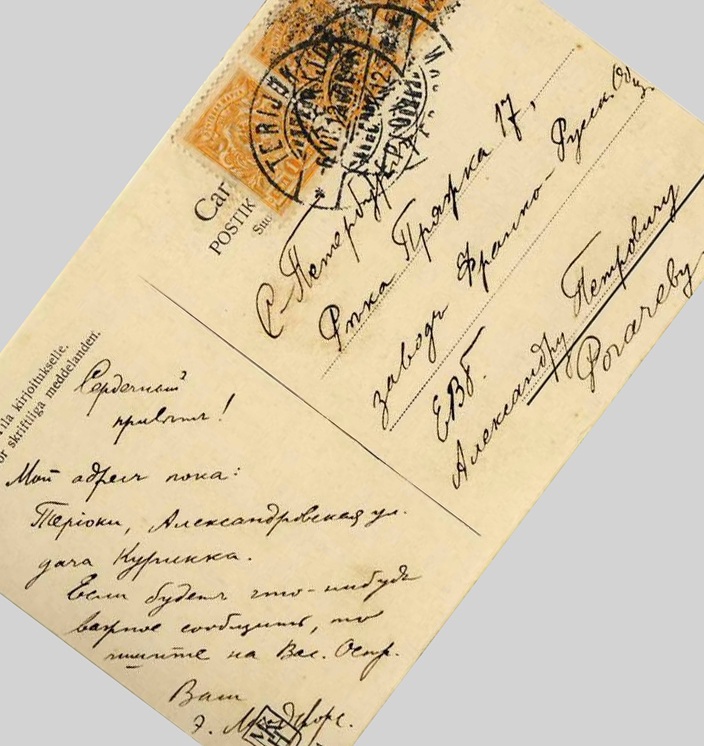 TERIJOKI
POSTIK
С-Петербург
Река Пряжка 17,
заводъ Франко-Русск. Общ.
ЕВБ.
Александру Петровичу
Рогачеву
la kirjoitukselle.
or skriftliga meddelanden.
Сердечный
привѣтъ!
Мой адресъ пока:
Теріоки, Александровская ул.
дача Курикка.
Если будетъ что-нибудь
важное сообщить, то
пишите на Вас. Остр.
Ваш
Э.